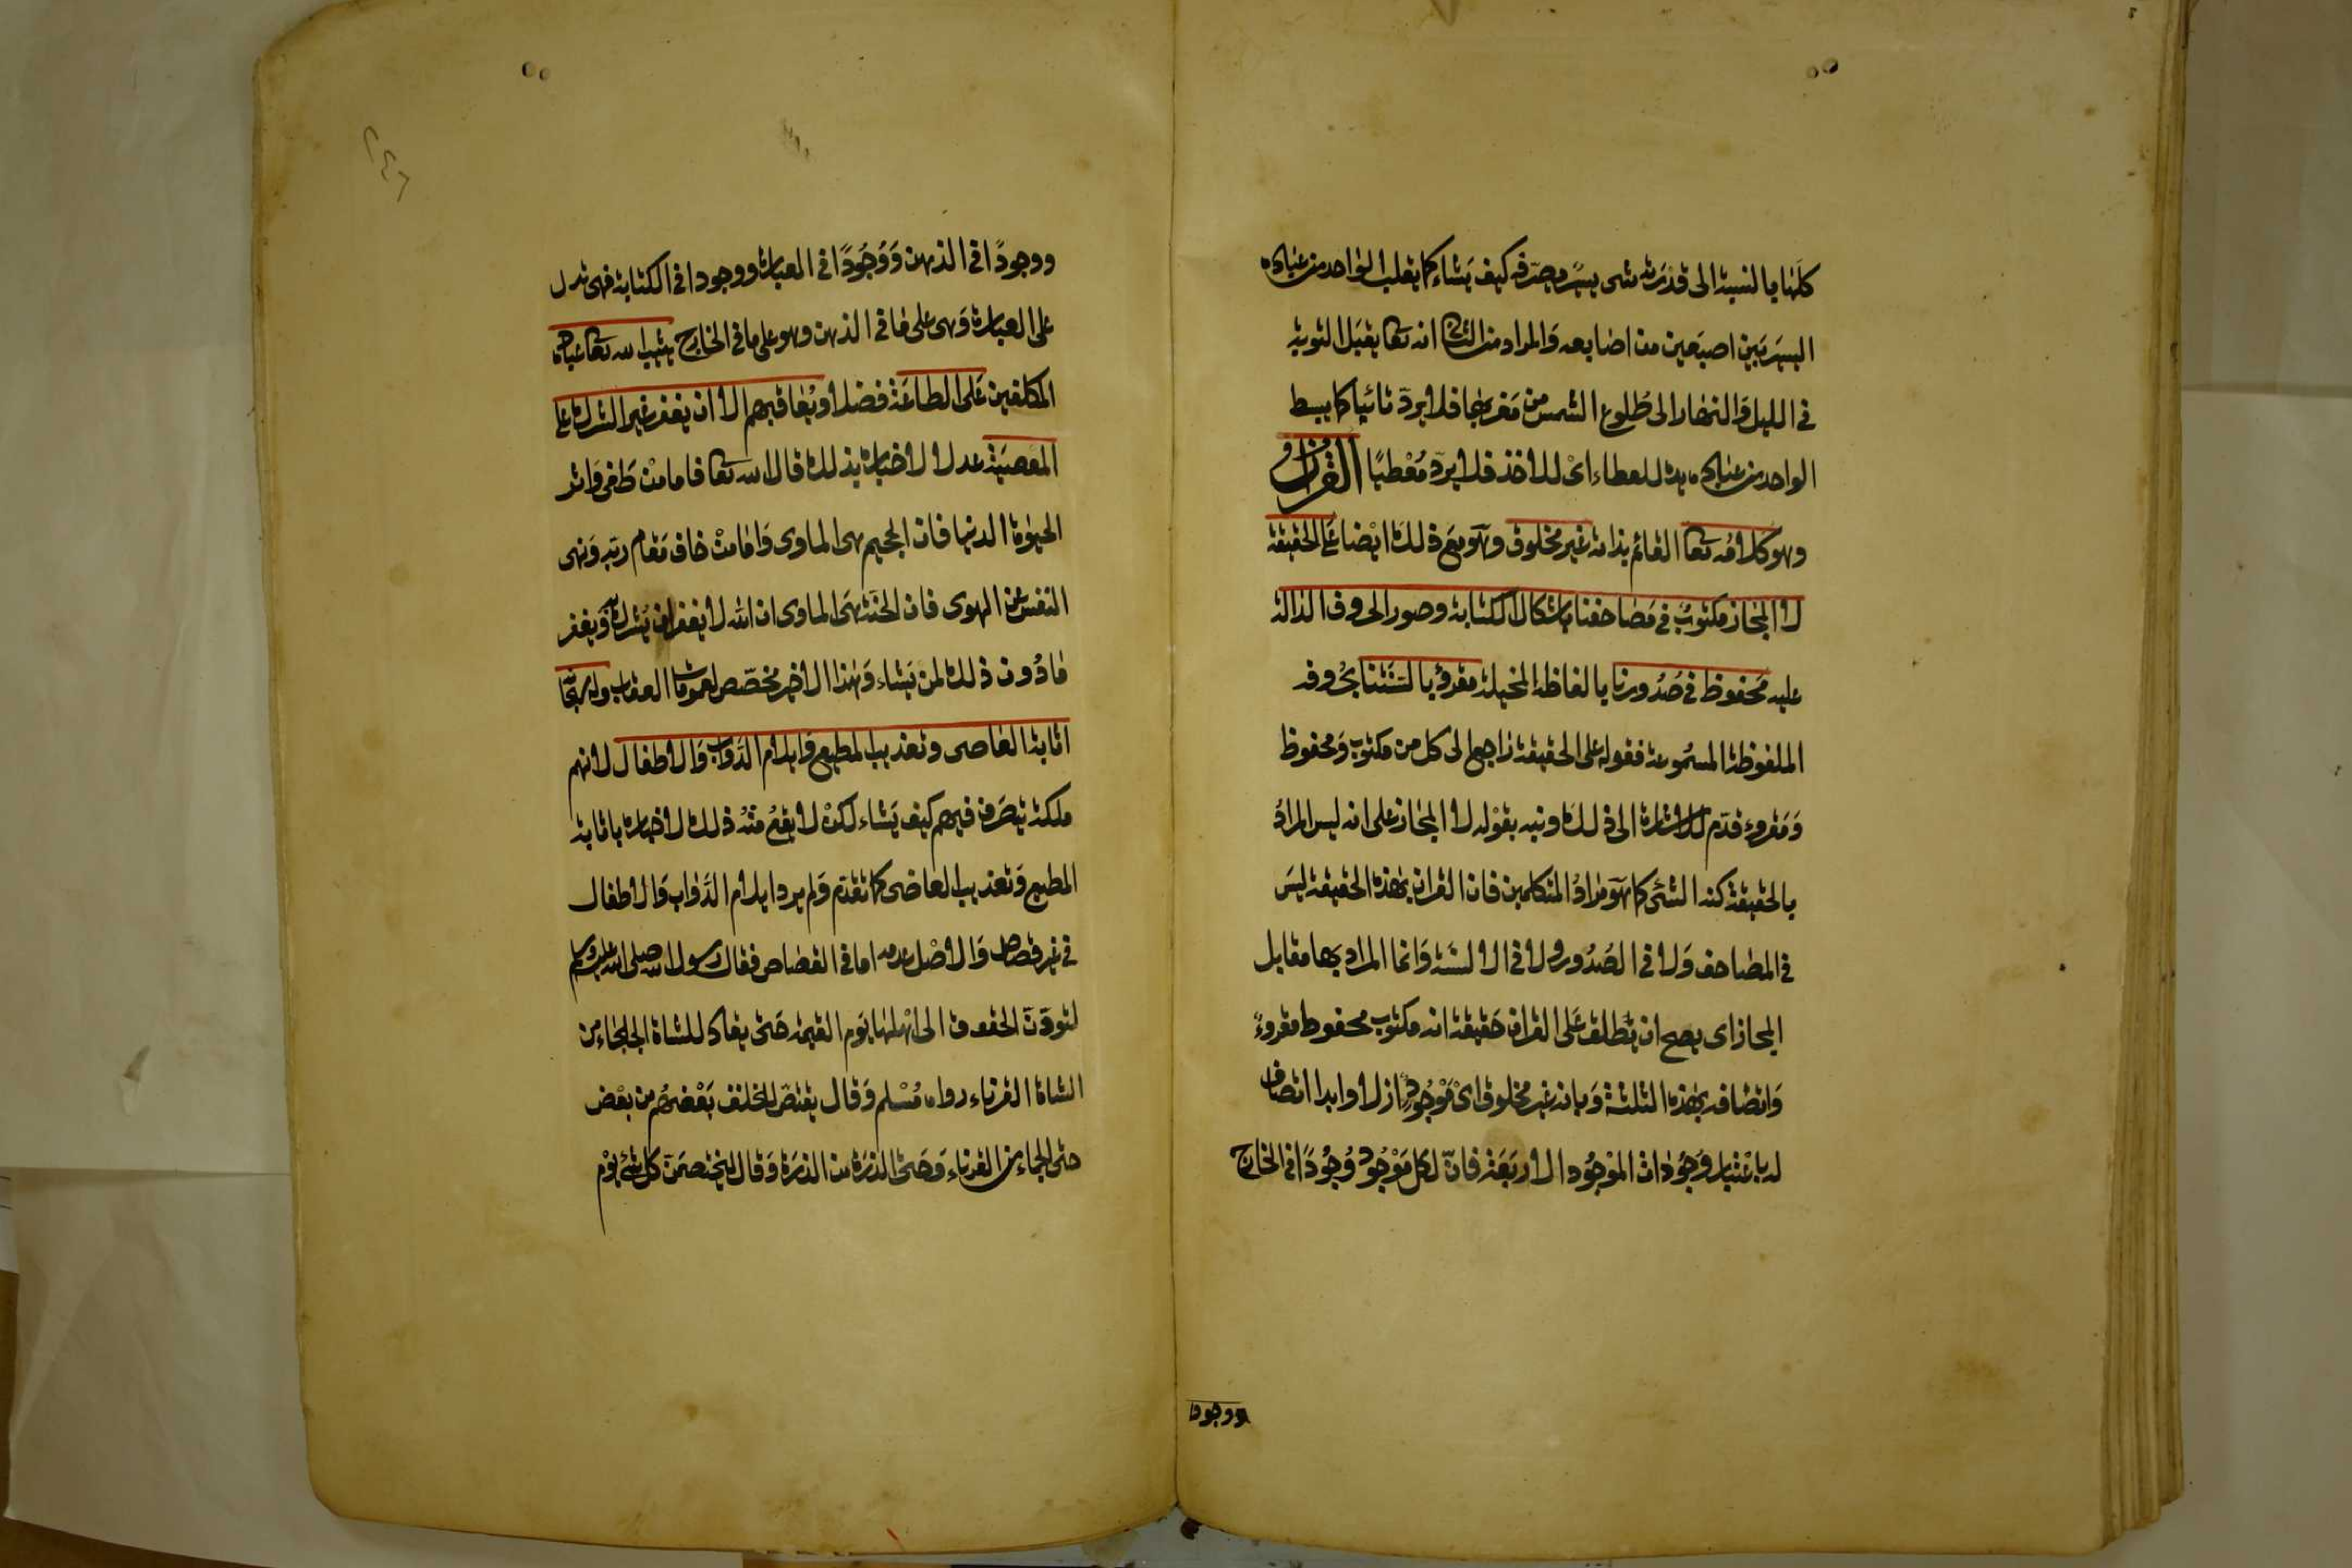 كلها بالنسبة الى قدرته شى يسير يصرفه كيف يشاء كما يقلب الواحد من عباده
اليسير بين اصبعين من اصابعه والمراد من الثانى انه تعا يقبل التوبة
فى الليل والنهار الى طلوع الشمس من مغربها فلا يرد تائبا كما يبسط
الواحد من عباده يده للعطاء اى للاخذ فلا يرد معطيا القران
وهو كلامه تعا القائم بذاته غير مخلوق وهو مع ذلك ايضا على الحقيقة
لا المجاز مكتوب فى مصاحفنا باشكال الكتابة وصور الحروف الدالة
عليه محفوظ فى صدورنا بالفاظه المخيلة مقروء بالسنتنا بحروفه
الملفوظة المسموعة فقوله على الحقيقة راجع الى كل من مكتوب ومحفوظ
ومقروء قدم للاشارة الى ذلك ونبه بقوله لا المجاز على انه ليس المراد
بالحقيقة كنه الشئ كما هو مراد المتكلمين فان القران بهذه الحقيقة ليس
فى المصاحف ولا فى الصدور ولا فى الالسنة وانما المراد بها مقابل
المجاز اى يصح ان يطلق على القران حقيقة انه مكتوب محفوظ مقروء
واتصافه بهذه الثلثة وبانه غير مخلوق اى موجود ازلا وابدا اتصاف
له باعتبار وجودات الموجود الاربعة فان لكل موجود وجودًا فى الخارج
ووجودا
ووجودًا فى الذهن ووجودًا فى العبارة ووجودا فى الكتابة فهى تدل
على العبارة وهى على ما فى الذهن وهو على ما فى الخارج يثيب الله تعا عباده
المكلفين على الطاعة فضلا ويعاقبهم الا ان يغفر غير الشرك على
المعصية عدلا لاخباره بذلك قال الله تعا فاما من طغى واثر
الحيوة الدنيا فان الجحيم هى الماوى واما من خاف مقام ربه ونهى
النفس عن الهوى فان الجنة هى الماوى ان الله لا يغفر ان يشرك به ويغفر
ما دون ذلك لمن يشاء وهذا الاخير مخصص لعمومات العقاب وله تعا
اثابة العاصى وتعذيب المطيع وايلام الدواب والاطفال لانهم
ملكه يتصرف فيهم كيف يشاء لكن لا يقع منه ذلك لاخباره باثابة
المطيع وتعذيب العاصى كما تقدم ولم يرد ايلام الدواب والاطفال
فى غير قصاص والاصل عدمه اما فى القصاص فقال رسول الله صلى الله عليه وسلم
لتودن الحقوق الى اهلها يوم القيمة حتى يقاد للشاة الجلحاء من
الشاة القرناء رواه مسلم وقال يقتص للخلق بعضهم من بعض
حتى للجماء من القرناء وحتى الذرة من الذرة وقال ليختصمن كل شئ يوم